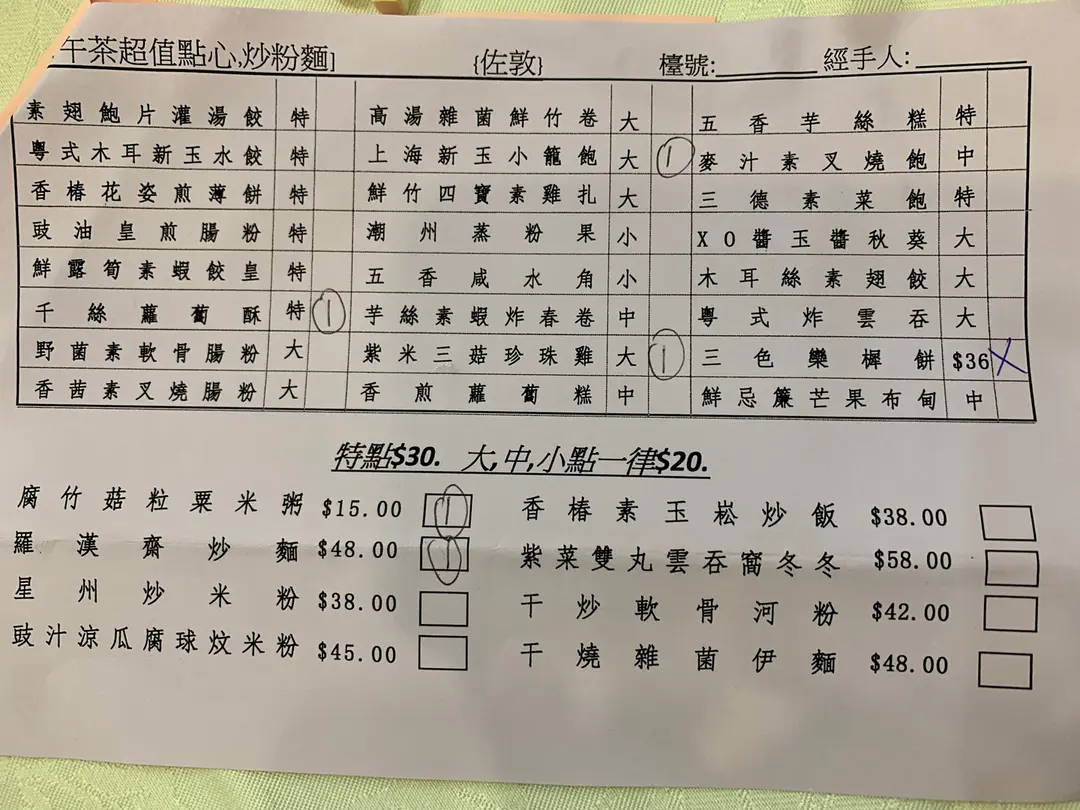 午茶超值點心,炒粉麵] {佐敦} 檯號:________ 經手人:________
素翅鮑片灌湯餃 特 高湯雜菌鮮竹卷 大 五香芋絲糕 特
粵式木耳新玉水餃 特 上海新玉小籠飽 大 1 麥汁素叉燒飽 中
香椿花姿煎薄餅 特 鮮竹四寶素雞扎 大 三德素菜飽 特
豉油皇煎腸粉 特 潮州蒸粉果 小 XO醬玉醬秋葵 大
鮮露筍素蝦餃皇 特 五香咸水角 小 木耳絲素翅餃 大
千絲蘿蔔酥 特 1 芋絲素蝦炸春卷 中 粵式炸雲吞 大
野菌素軟骨腸粉 大 紫米三菇珍珠雞 大 1 三色欒樨餅 $36 X
香茜素叉燒腸粉 大 香煎蘿蔔糕 中 鮮忌簾芒果布甸 中
特點$30. 大,中,小點一律$20.
腐竹菇粒粟米粥 $15.00 1 香椿素玉崧炒飯 $38.00
羅漢齋炒麵 $48.00 1 紫菜雙丸雲吞窩冬冬 $58.00
星州炒米粉 $38.00 干炒軟骨河粉 $42.00
豉汁涼瓜腐球炆米粉 $45.00 干燒雜菌伊麵 $48.00